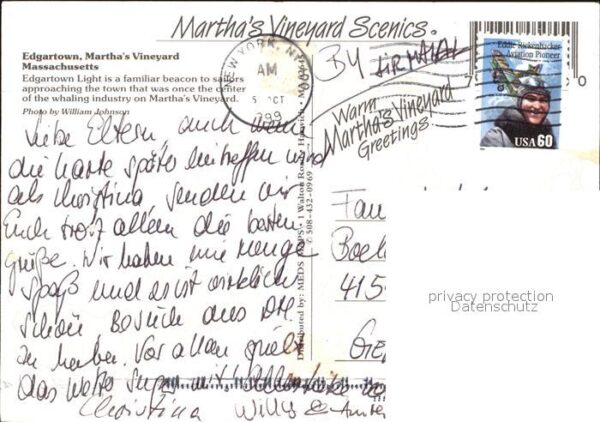 Martha's Vineyard Scenics.
Edgartown, Martha's Vineyard
Massachusetts
Edgartown Light is a familiar beacon to sailors
approaching the town that was once the center
of the whaling industry on Martha's Vineyard.
Photo by William Johnson
NEW YORK, NY
AM
5 OCT
199
BY AIRMAIL
Eddie Rickenbacker
Aviation Pioneer
USA 60
7
0
Warm
Martha's Vineyard
Greetings
Liebe Eltern, auch wenn
die Karte später eintreffen wird
als Christina, senden wir
Euch trotz allem die besten
Grüße. Wir haben eine Menge
Spaß und es ist wirklich
schön Besuch aus
zu haben. Vor allem spielt
das Wetter super mit.
Christina Willy &
Distributed by: MEDS MAPS • 1 Walton Road • Harwich,
508-432-0969
Fam
Boeh
415
GE
privacy protection
Datenschutz